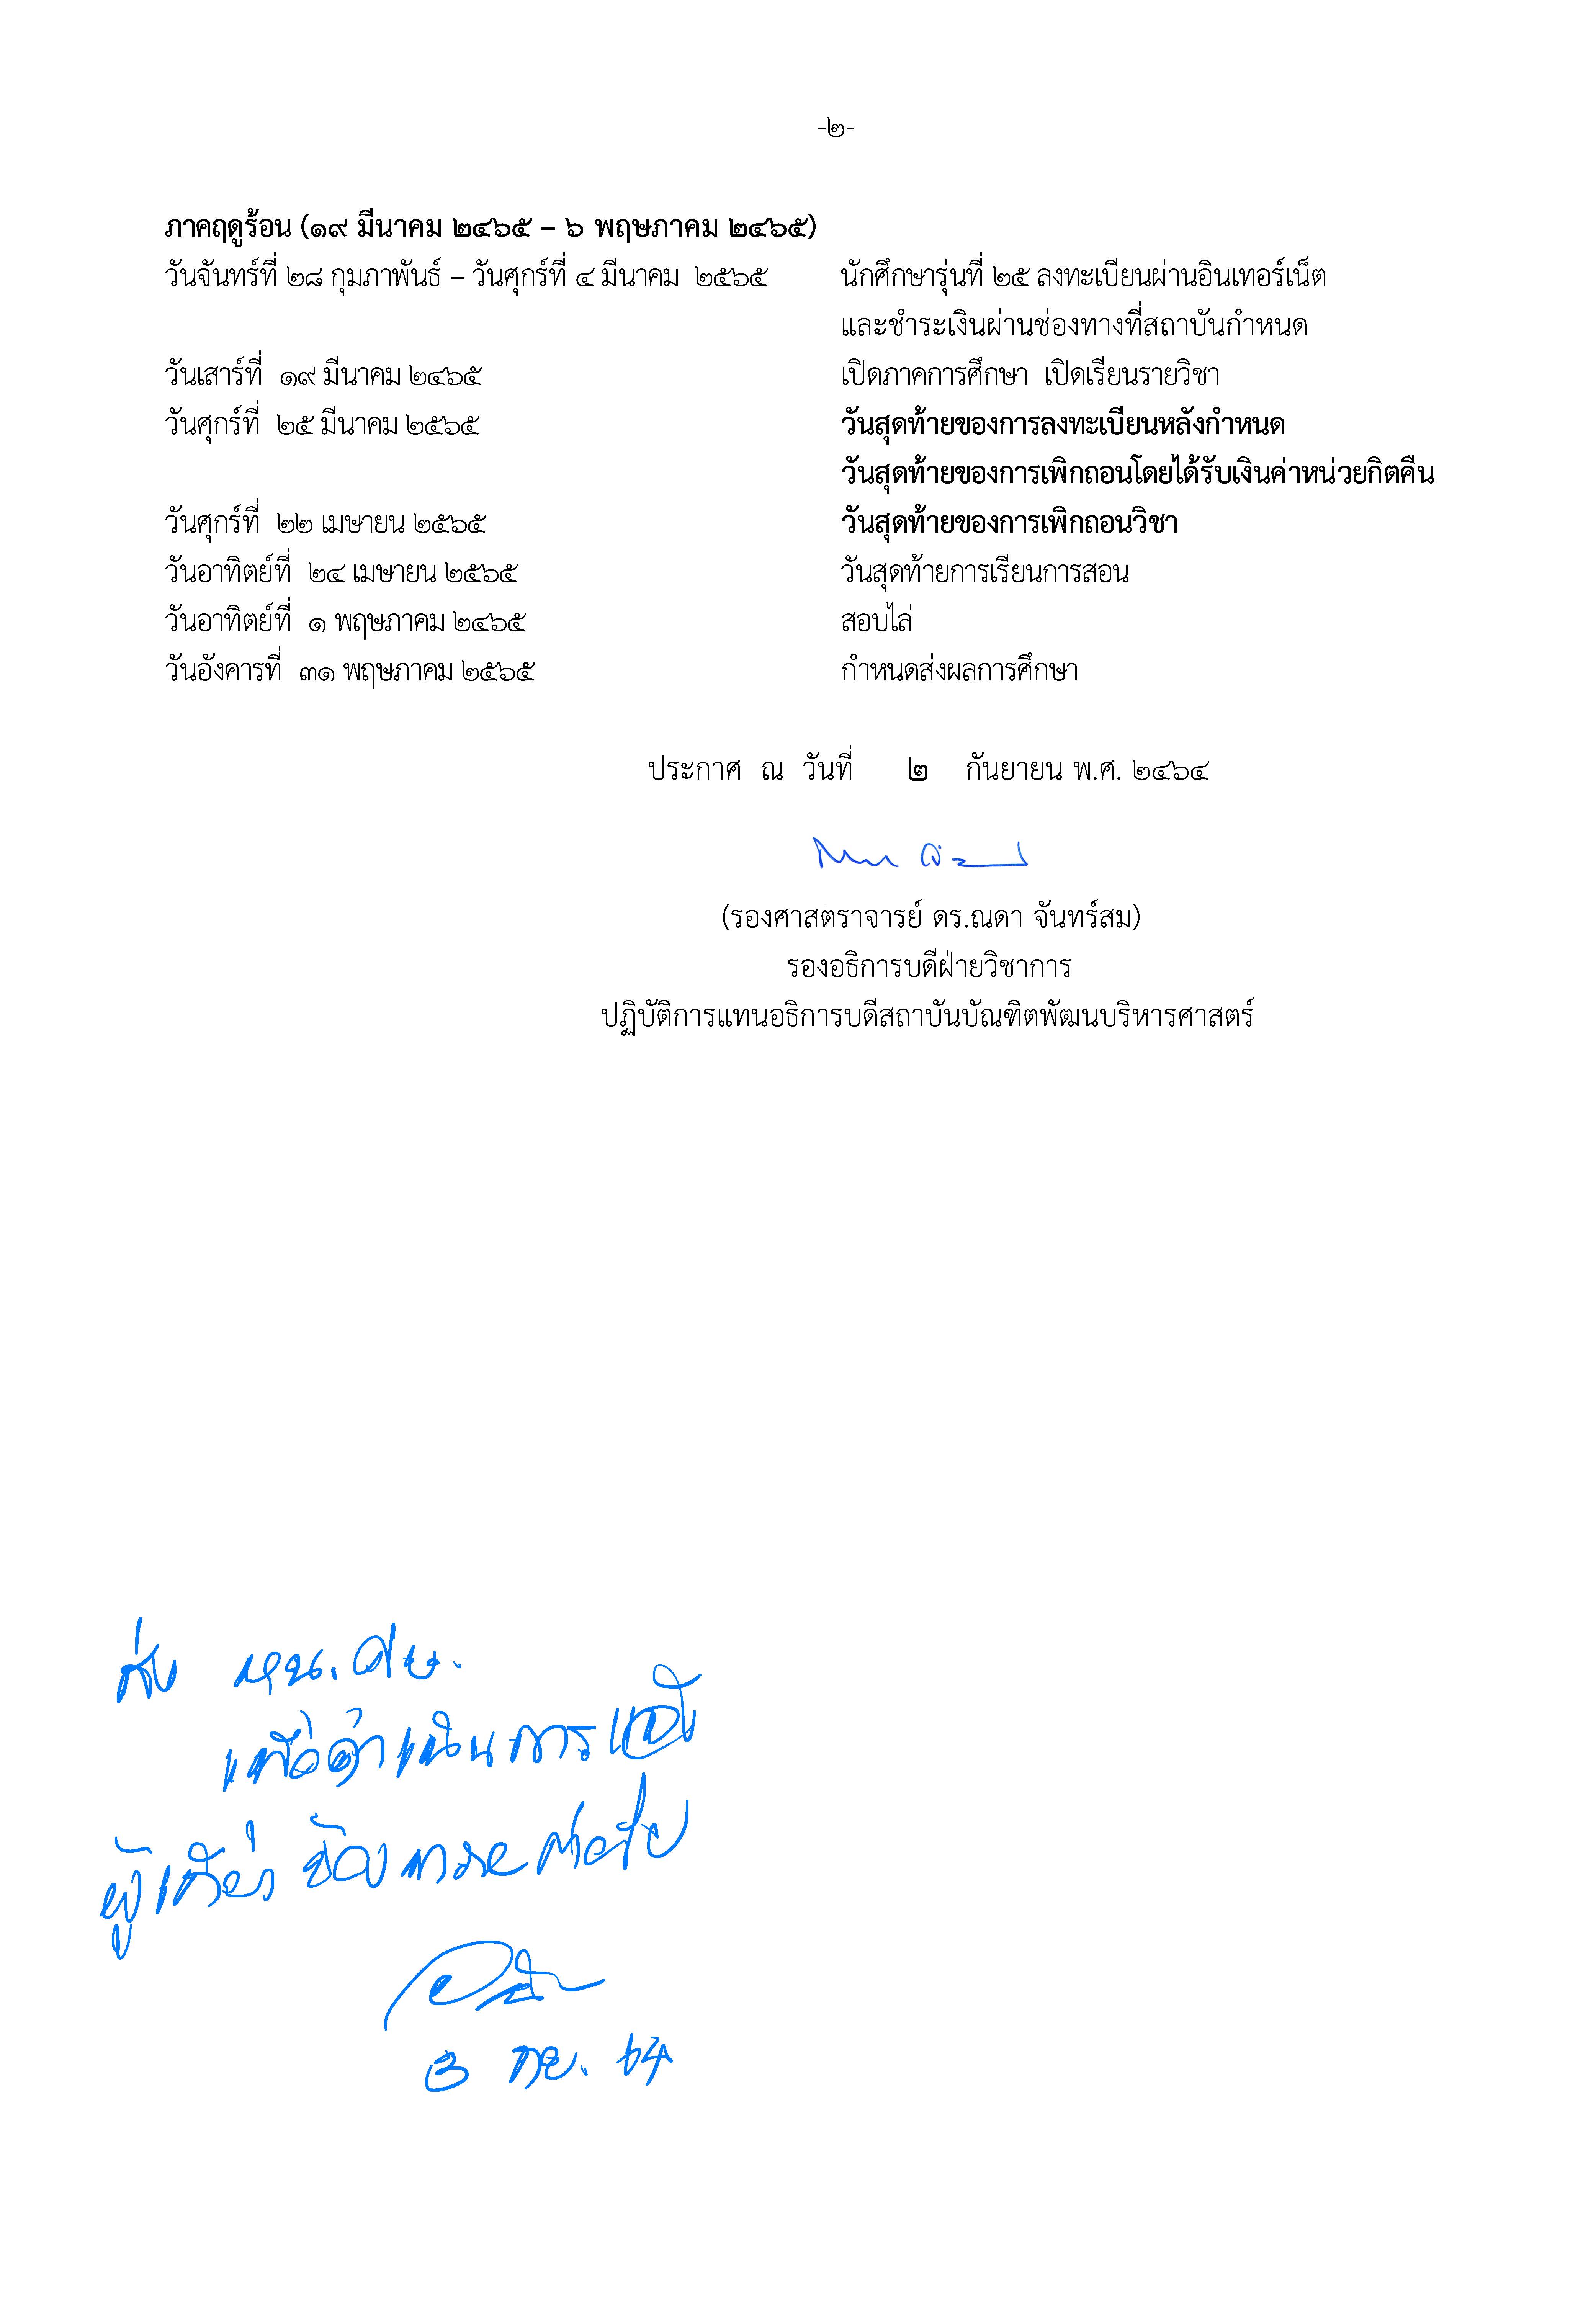 -๒-
ภาคฤดูร้อน (๑๙ มีนาคม ๒๔๖๕ – ๖ พฤษภาคม ๒๔๖๕)
วันจันทร์ที่ ๒๘ กุมภาพันธ์ – วันศุกร์ที่ ๔ มีนาคม ๒๕๖๕ นักศึกษารุ่นที่ ๒๕ ลงทะเบียนผ่านอินเทอร์เน็ต
และชำระเงินผ่านช่องทางที่สถาบันกำหนด
วันเสาร์ที่ ๑๙ มีนาคม ๒๔๖๕ เปิดภาคการศึกษา เปิดเรียนรายวิชา
วันศุกร์ที่ ๒๕ มีนาคม ๒๕๖๕ วันสุดท้ายของการลงทะเบียนหลังกำหนด
วันสุดท้ายของการเพิกถอนโดยได้รับเงินค่าหน่วยกิตคืน
วันศุกร์ที่ ๒๒ เมษายน ๒๕๖๕ วันสุดท้ายของการเพิกถอนวิชา
วันอาทิตย์ที่ ๒๔ เมษายน ๒๕๖๕ วันสุดท้ายการเรียนการสอน
วันอาทิตย์ที่ ๑ พฤษภาคม ๒๔๖๕ สอบไล่
วันอังคารที่ ๓๑ พฤษภาคม ๒๕๖๕ กำหนดส่งผลการศึกษา
ประกาศ ณ วันที่ ๒ กันยายน พ.ศ. ๒๔๖๔
(รองศาสตราจารย์ ดร.ณดา จันทร์สม)
รองอธิการบดีฝ่ายวิชาการ
ปฏิบัติการแทนอธิการบดีสถาบันบัณฑิตพัฒนบริหารศาสตร์
ส่ง หน.ศษ.
เพื่อดำเนินการแจ้ง
ผู้เกี่ยวข้องทราบต่อไป
3 กย. 64